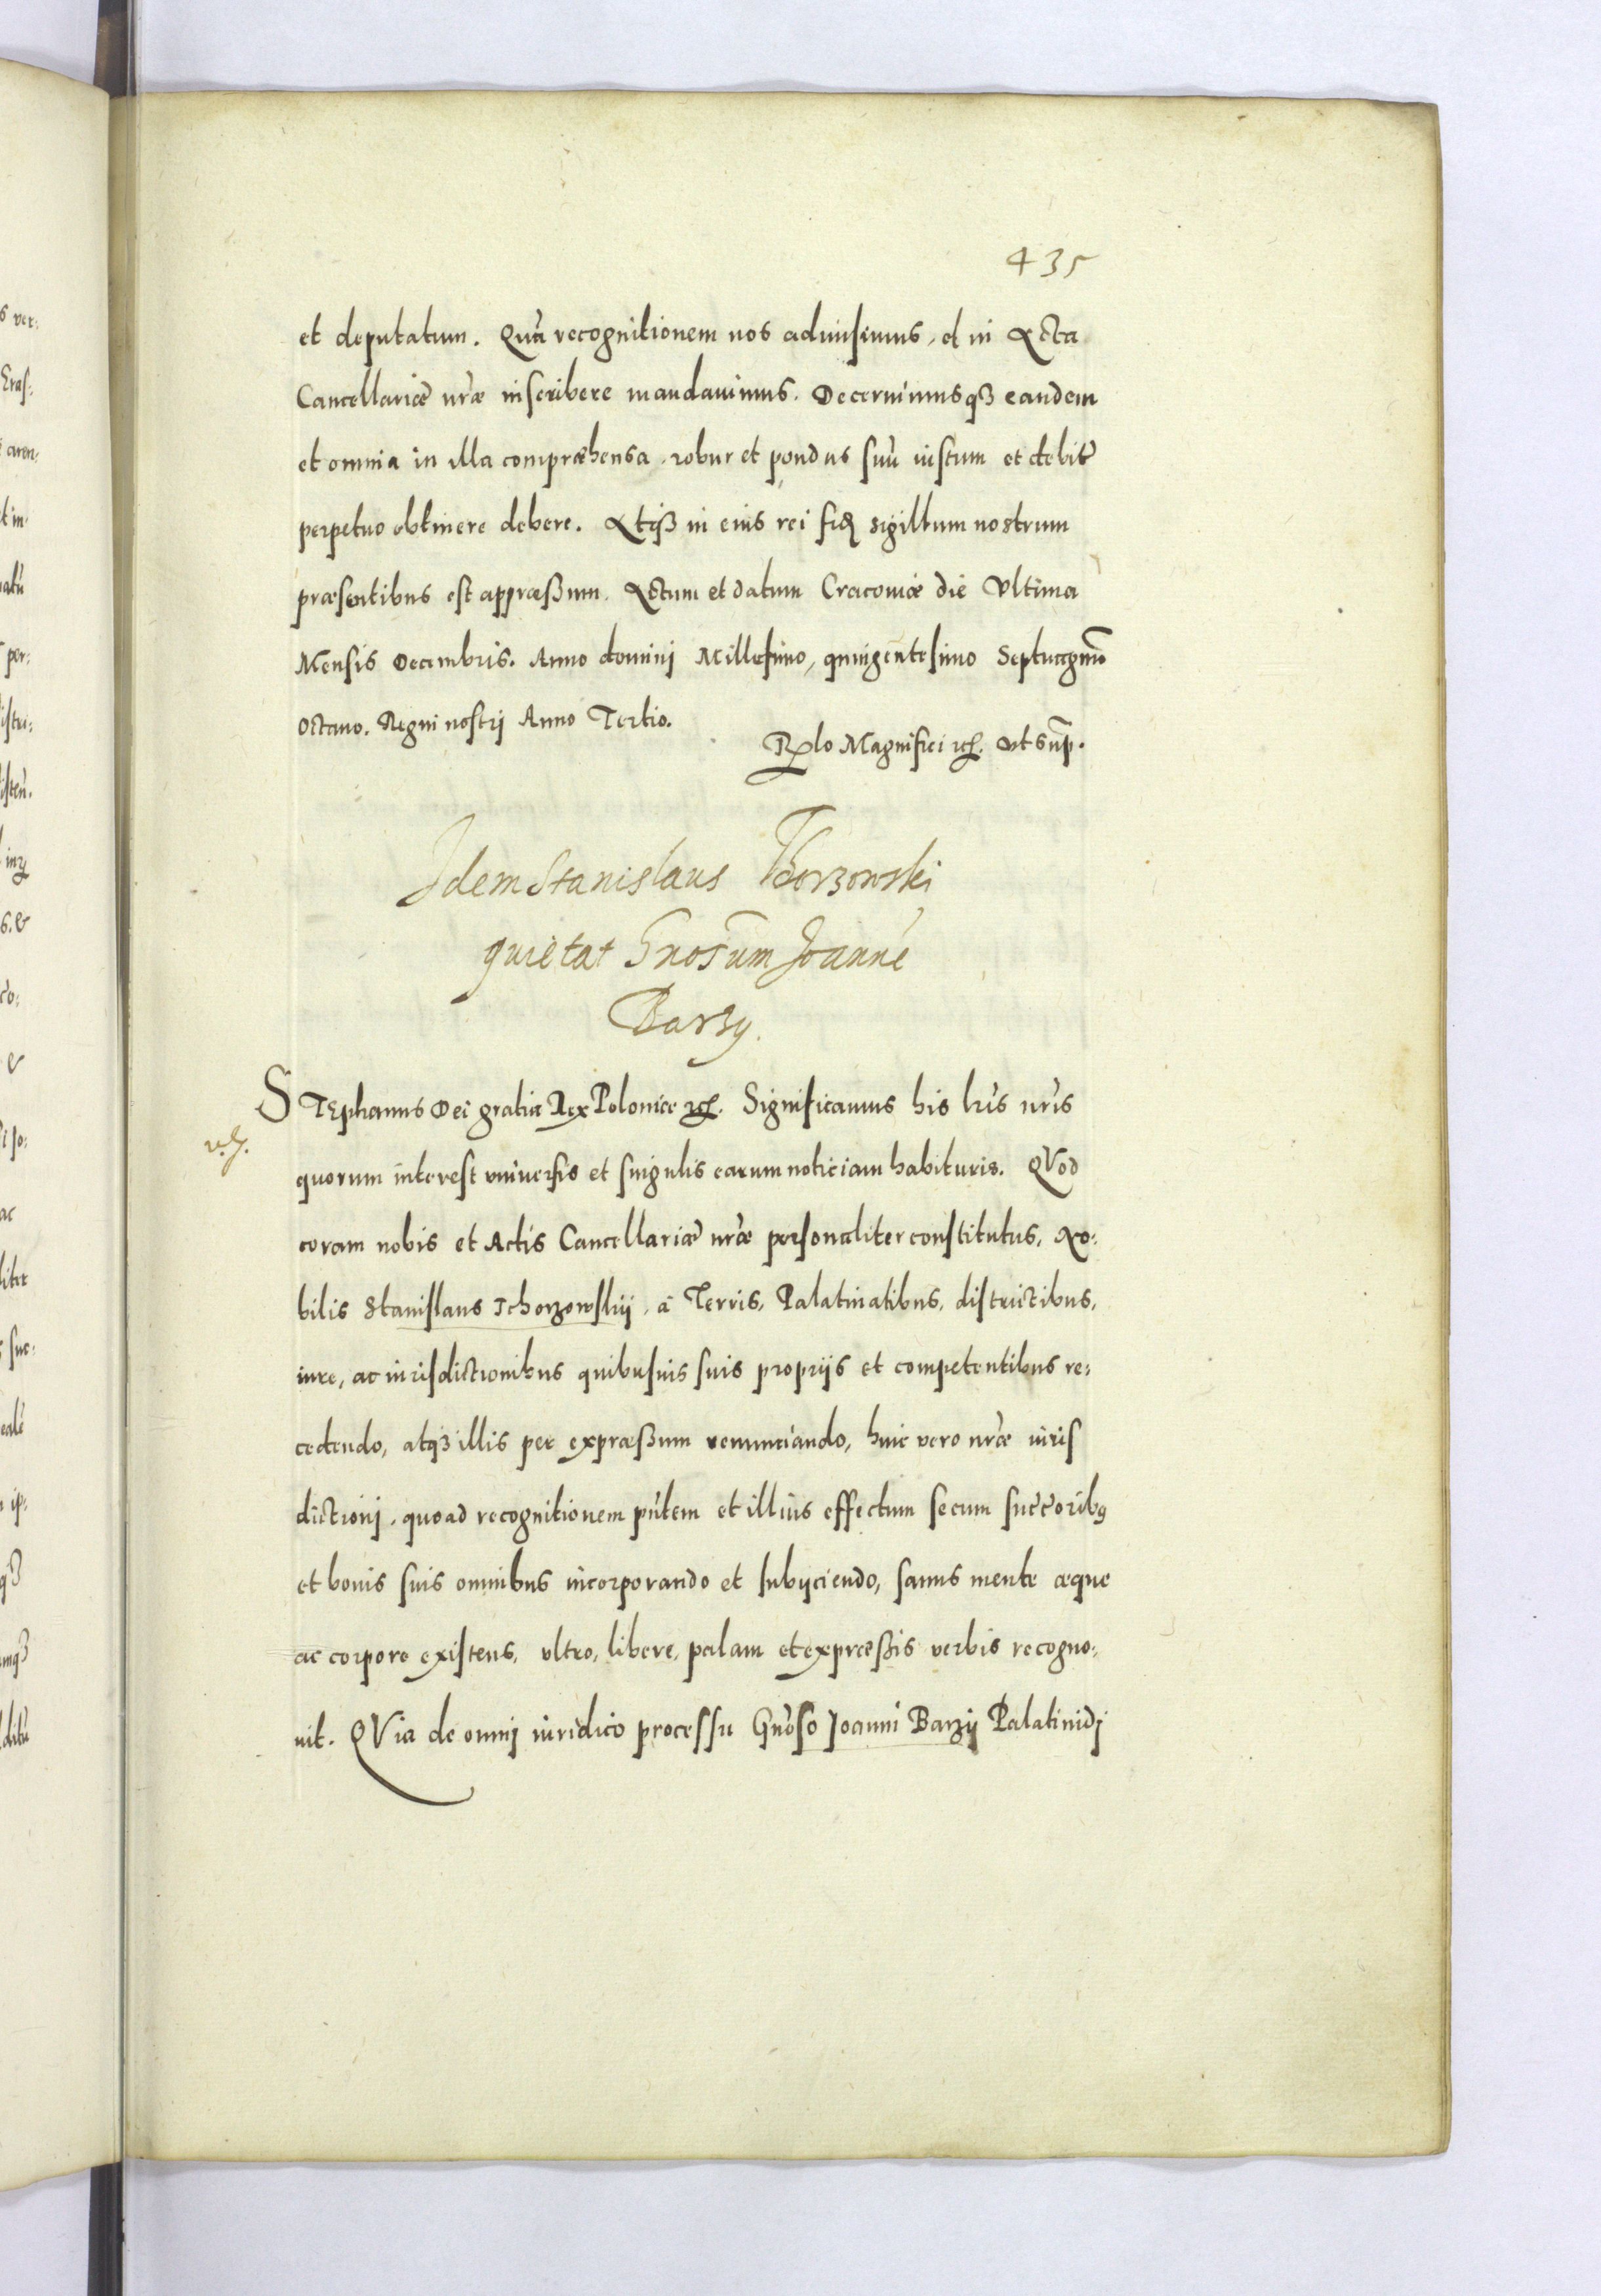 435
et deputatum. Quã recognitionem nos admisimus, et in Acta
Cancellariæ nr̃æ inscribere mandauimus. Decernimusqȝ eandem
et omnia in illa compræhensa, robur et pondus suũ iustum et debitũ
perpetuo obtinere debere. Atqȝ in eius rei fidẽ sigillum nostrum
præsentibus est appræßum. Actum et datum Cracouiæ die Vltima
Mensis Decembris. Anno dominj Millesimo, quingentesimo Septuagmo
octauo. Regni nostrj Anno Tertio.
Rẽlo Magnifici etc. vt sup̃.
Idem Stanislaus Thorzowski
quietat Gnosum Joannẽ
Barzy.
STEphanus Dei gratia Rex Poloniæ etc. Significamus his lr̃is nr̃is
quorum interest vniuersis et singulis earum noticiam habituris. QVod
coram nobis et Actis Cancellariæ nr̃æ personaliter constitutus, No:
bilis Stanislaus Tchorzowskij, à Terris, Palatinatibus, districtibus,
iure, ac iurisdictionibus quibusuis suis proprijs et competentibus re:
cedendo, atqȝ illis per expræßum renunciando, huic vero nr̃æ iuris
dictionj, quoad recognitionem pñtem et illius effectum secum succ̃oribꝰ
et bonis suis omnibus incorporando et subijciendo, sanus mente æque
ac corpore existens, vltro, libere, palam et expræßis verbis recogno:
uit. QVia de omnj iuridico processu Gnõso Joanni Barzij Palatinidj